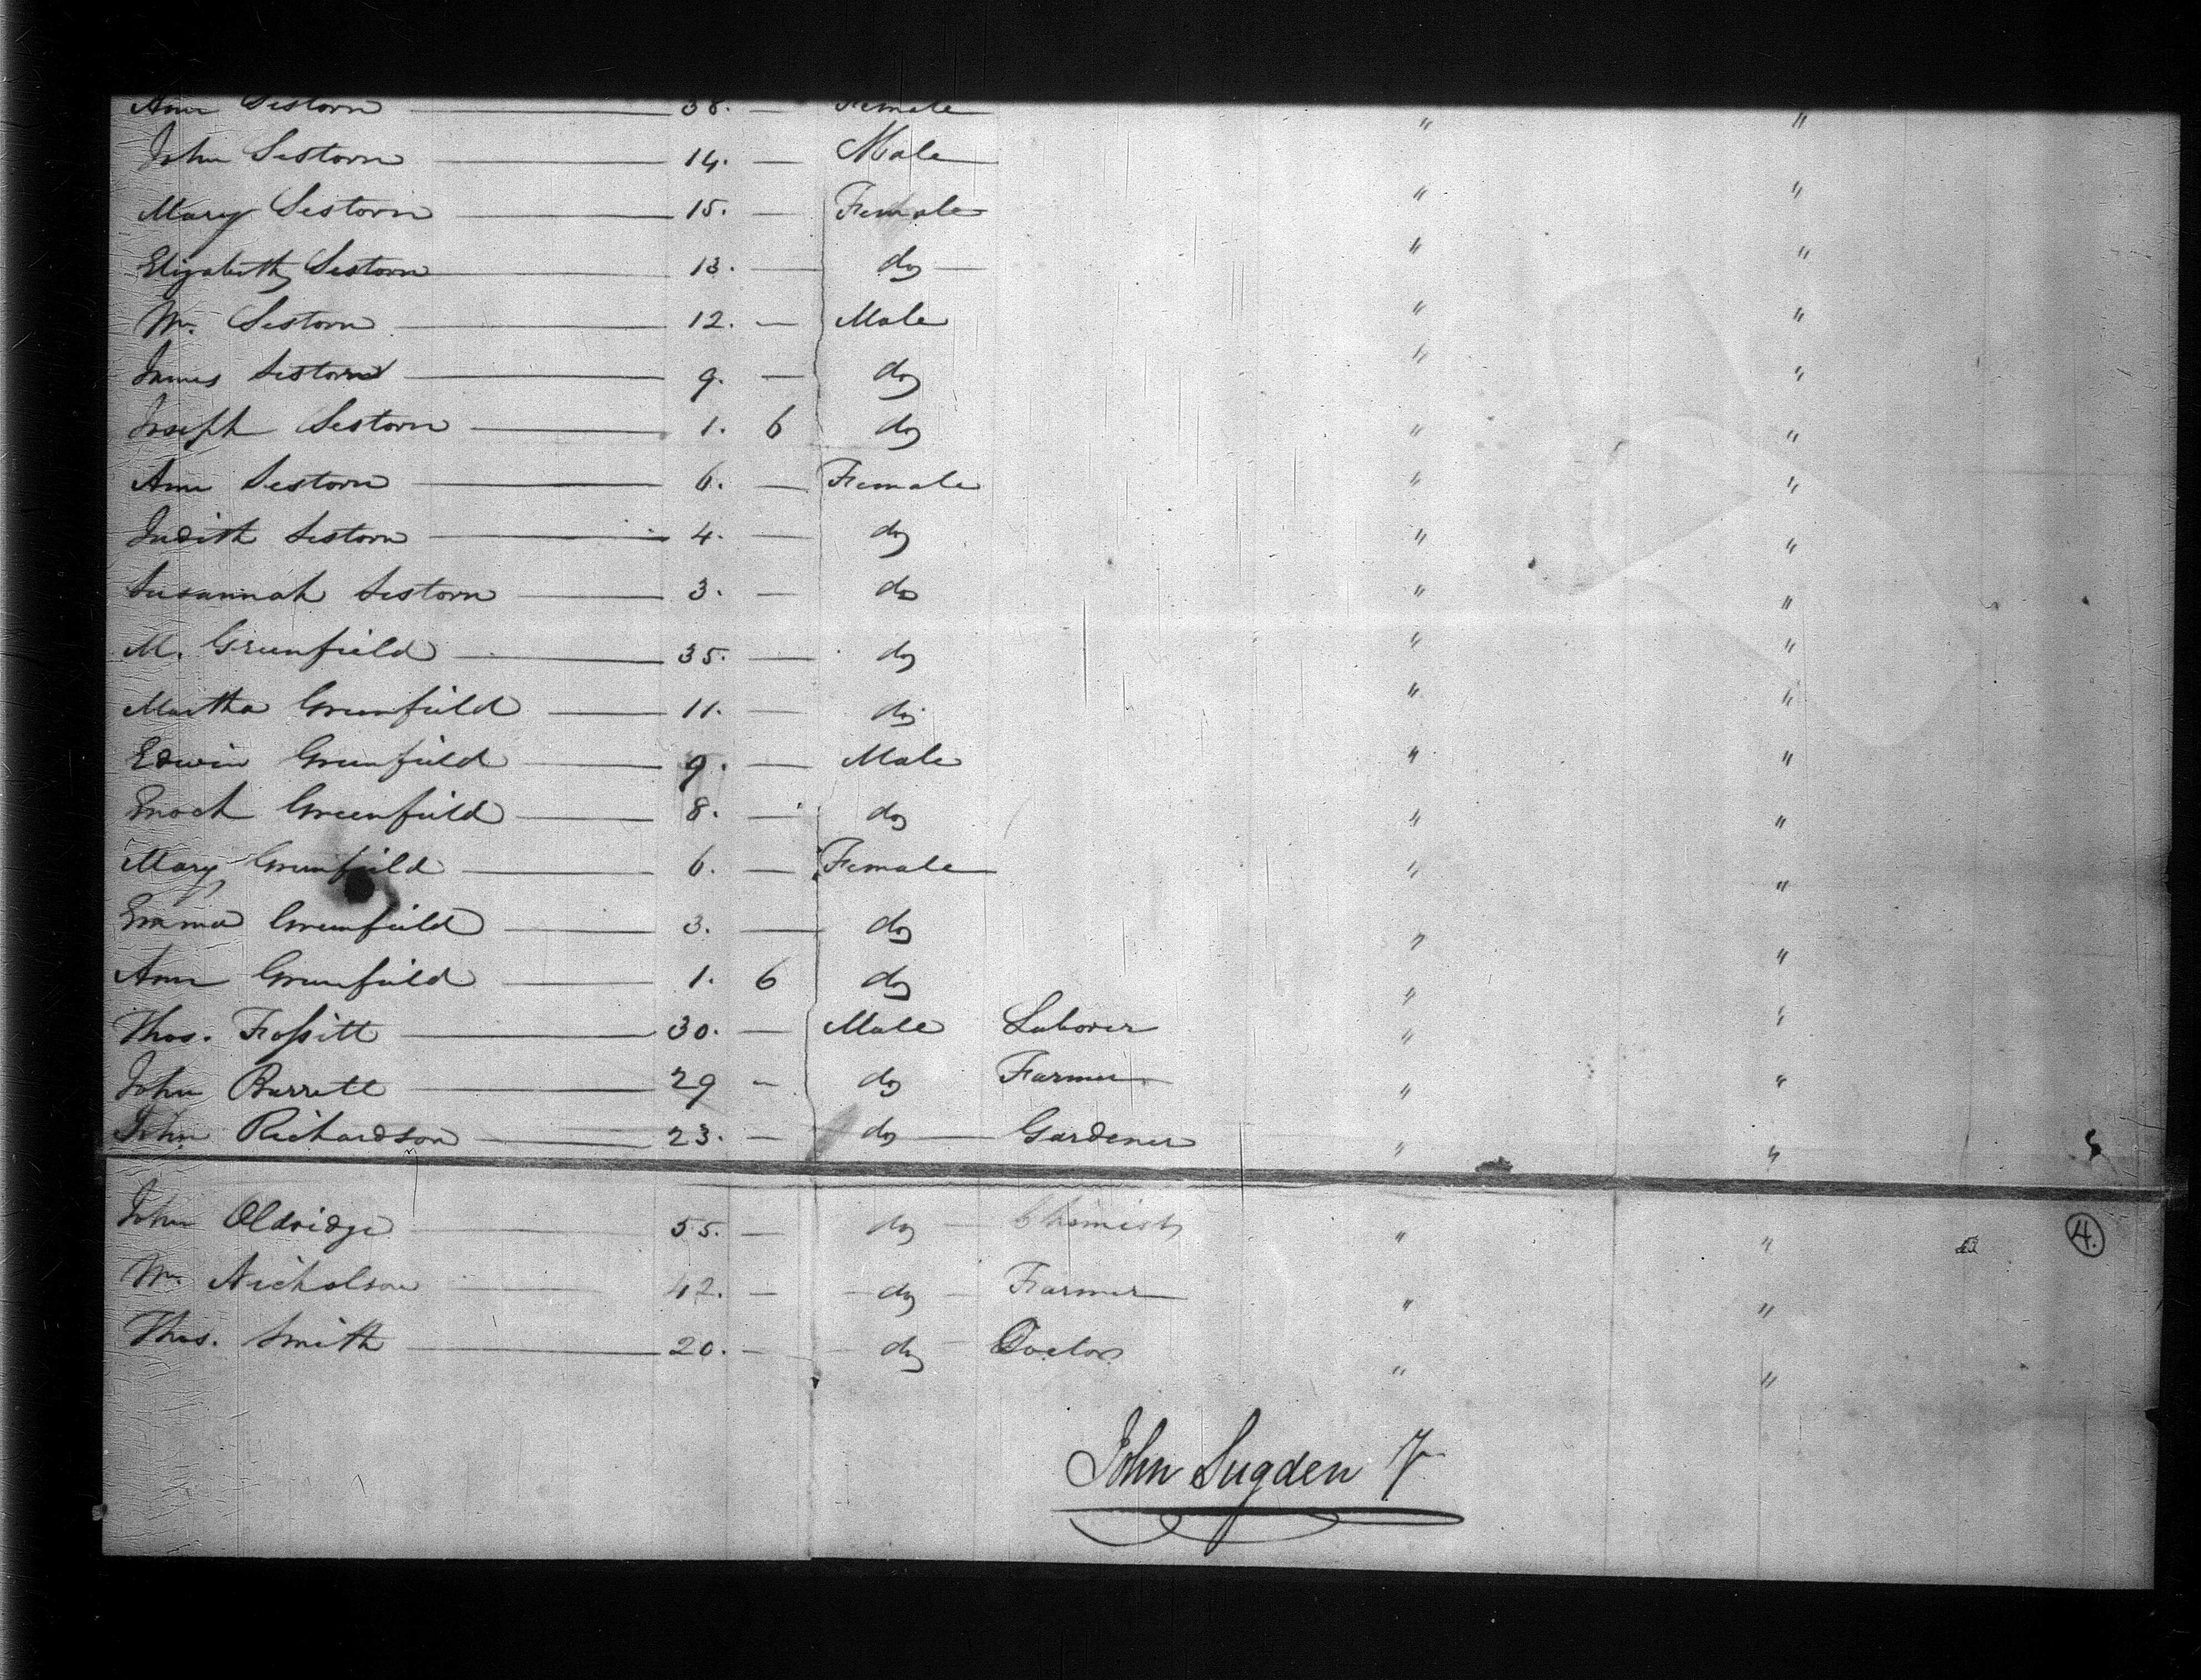 Ann Sestorn 38. — Female " "
John Sestorn 14. — Male " "
Mary Sestorn 15. — Female " "
Elizabeth Sestorn 13. — do — " "
Wm. Sestorn 12. — Male " "
James Sestorn 9. — do " "
Joseph Sestorn 1. 6 do " "
Ann Sestorn 6. — Female " "
Judith Sestorn 4. — do " "
Susannah Sestorn 3. — do " "
M. Greenfield 35. — do " "
Martha Greenfield 11. — do " "
Edwin Greenfield 9. — Male " "
Enoch Greenfield 8. — do " "
Mary Greenfield 6. — Female " "
Emma Greenfield 3. — do " "
Ann Greenfield 1. 6 do " "
Thos. Fossitt 30. — Male Laborer " "
John Barrett 29 — do Farmer " "
John Richardson 23. — do — Gardener " "
John Oldridge 55. — do — Chemist " " 4.
Wm. Nicholson 42. — do — Farmer " "
Thos. Smith 20. — do — Doctor " "
John Sugden